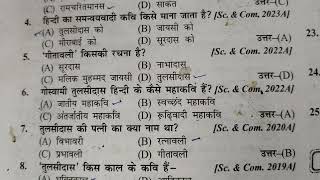 (C) रामचरितमानस (D) साकेत
4. हिन्दी का समन्वयवादी कवि किसे माना जाता है? [Sc. & Com. 2023A]
(A) तुलसीदास को (B) जायसी को
(C) मीराबाई को (D) सूरदास को उत्तर–(A)
5. 'गीतावली' किसकी रचना है? [Sc. & Com. 2022A]
(A) सूरदास (B) नाभादास
(C) मलिक मुहम्मद जायसी (D) तुलसीदास उत्तर–(D)
6. गोस्वामी तुलसीदास हिन्दी के कैसे महाकवि हैं? [Sc. & Com. 2022A]
(A) जातीय महाकवि (B) स्वच्छंद महाकवि
(C) अंतर्जातीय महाकवि (D) रूढ़िवादी महाकवि उत्तर–(A)
7. तुलसीदास की पत्नी का क्या नाम था? [Sc. & Com. 2020A]
(A) विभावरी (B) रत्नावली
(C) प्रभावली (D) गीतावली उत्तर–(B)
8. 'तुलसीदास' किस काल के कवि हैं– [Sc. & Com. 2019A]
23.
24.
25.